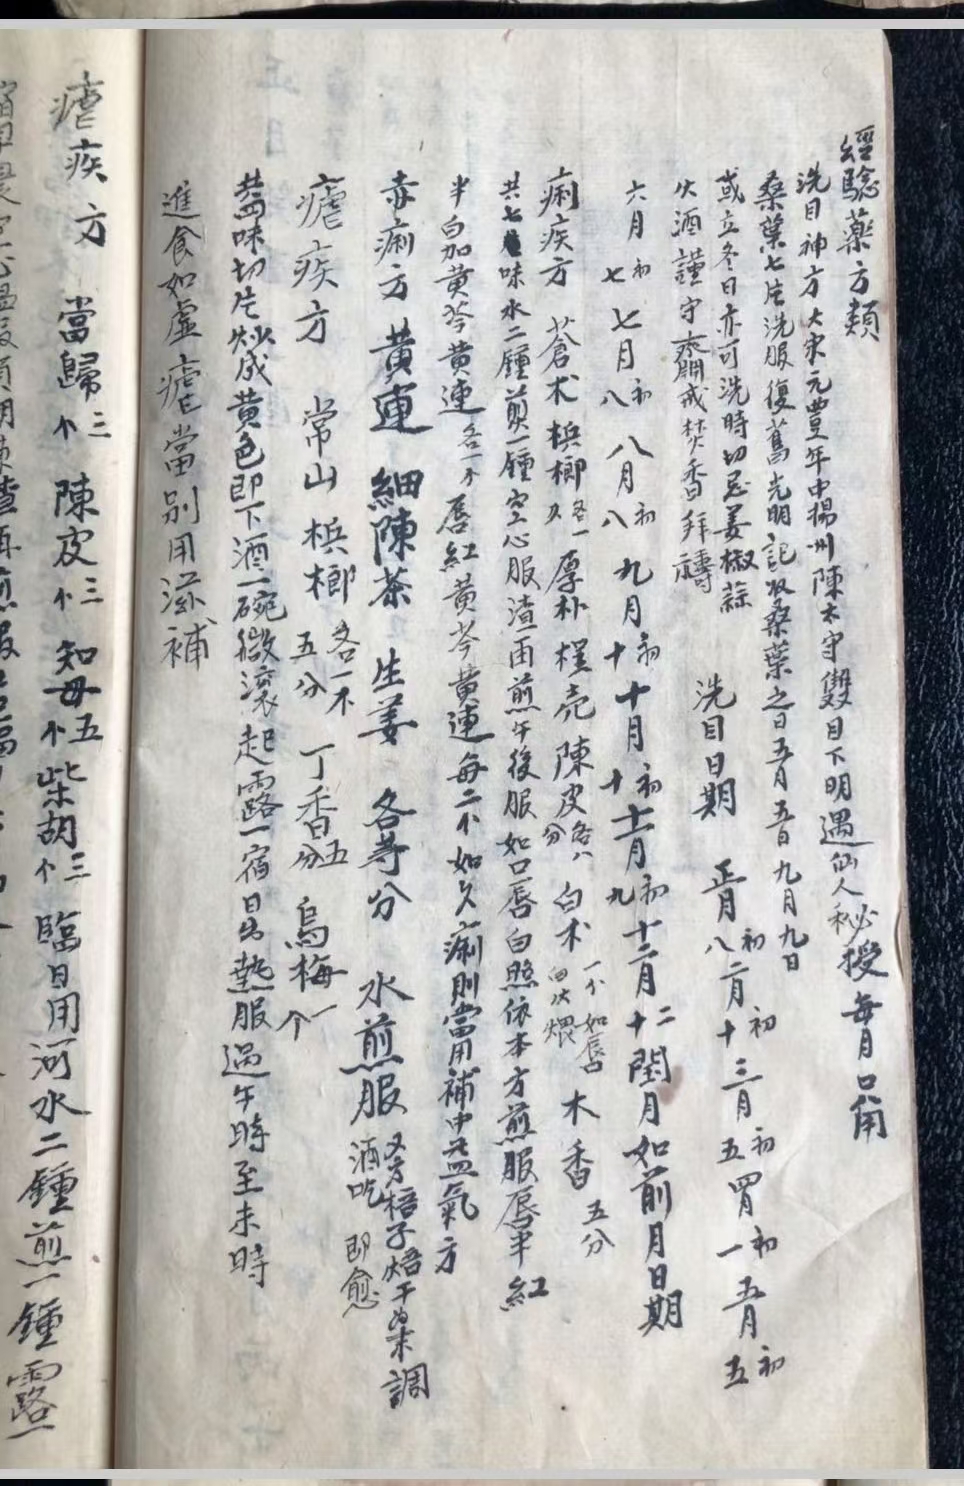 經驗藥方類
洗目神方大宋元豐年中揚州陳木守雙目下明遇仙人秘授每月日用
桑葉七片洗服復舊光明記收桑葉之日五月五日九月九日
或立冬日亦可洗時切忌姜椒蒜
火酒謹守齋戒焚香拜禱 洗目日期 正月初八 二月初十 三月初五 四月初一 五月初五
六月初七 七月初八 八月初八 九月初十 十月初十 十一月初九 十二月十二 閏月如前月日期
痢疾方 蒼术 梹榔各一 厚朴 樘壳 陳皮各八分 白术一个如唇白火煨 木香五分
共七味水二鍾煎一鍾空心服渣再煎午後服如口唇白照依本方煎服唇半紅
半白加黄芩黄連各一个唇紅黄岑黄連每二个如久痢則當用補中益氣方
赤痢方 黄連 細陳茶 生姜 各等分 水煎服 又方梧子焙干為末調酒吃即愈
瘧疾方 常山 梹榔各一不五分 丁香五分 烏梅一个
共四味切片炒成黄色即下酒一碗微滚起露一宿日出熱服過午時至未時
進食如虛瘧當別用滋補
瘧疾方 當歸三个 陳皮三个 知母五个 柴胡三个 臨日用河水二鍾煎一鍾露一